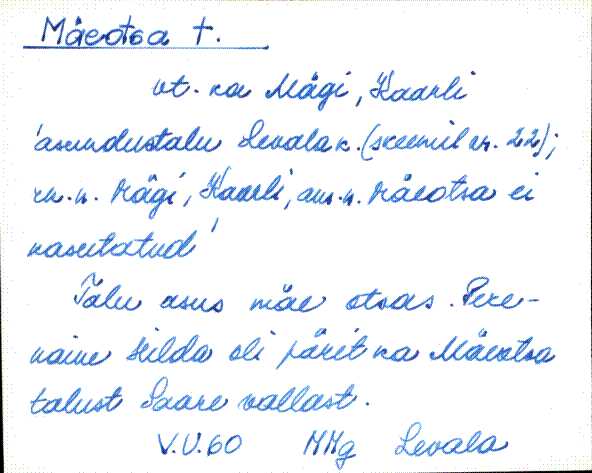 Mäeotsa t.
vt. ka Mägi, Kaarli
'asundustalu Levala k. (skeemil nr. 22);
rn. n. Mägi, Kaarli, ams. n. Mäeotsa ei
kasutatud'
Talu asus mäe otsas. Pere-
naine Hilda oli pärit ka Mäeotsa
talust Saare vallast.
V.U.60 MMg Levala